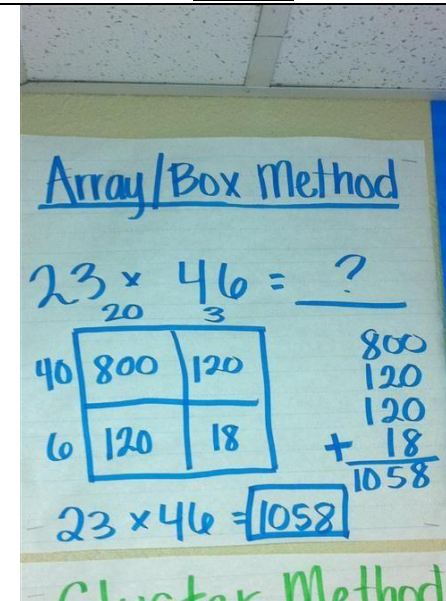 Array/Box Method
23 × 46 = ?
20 3
40 800 120
6 120 18
800
120
120
+ 18
1058
23 × 46 = 1058
Cluster Method